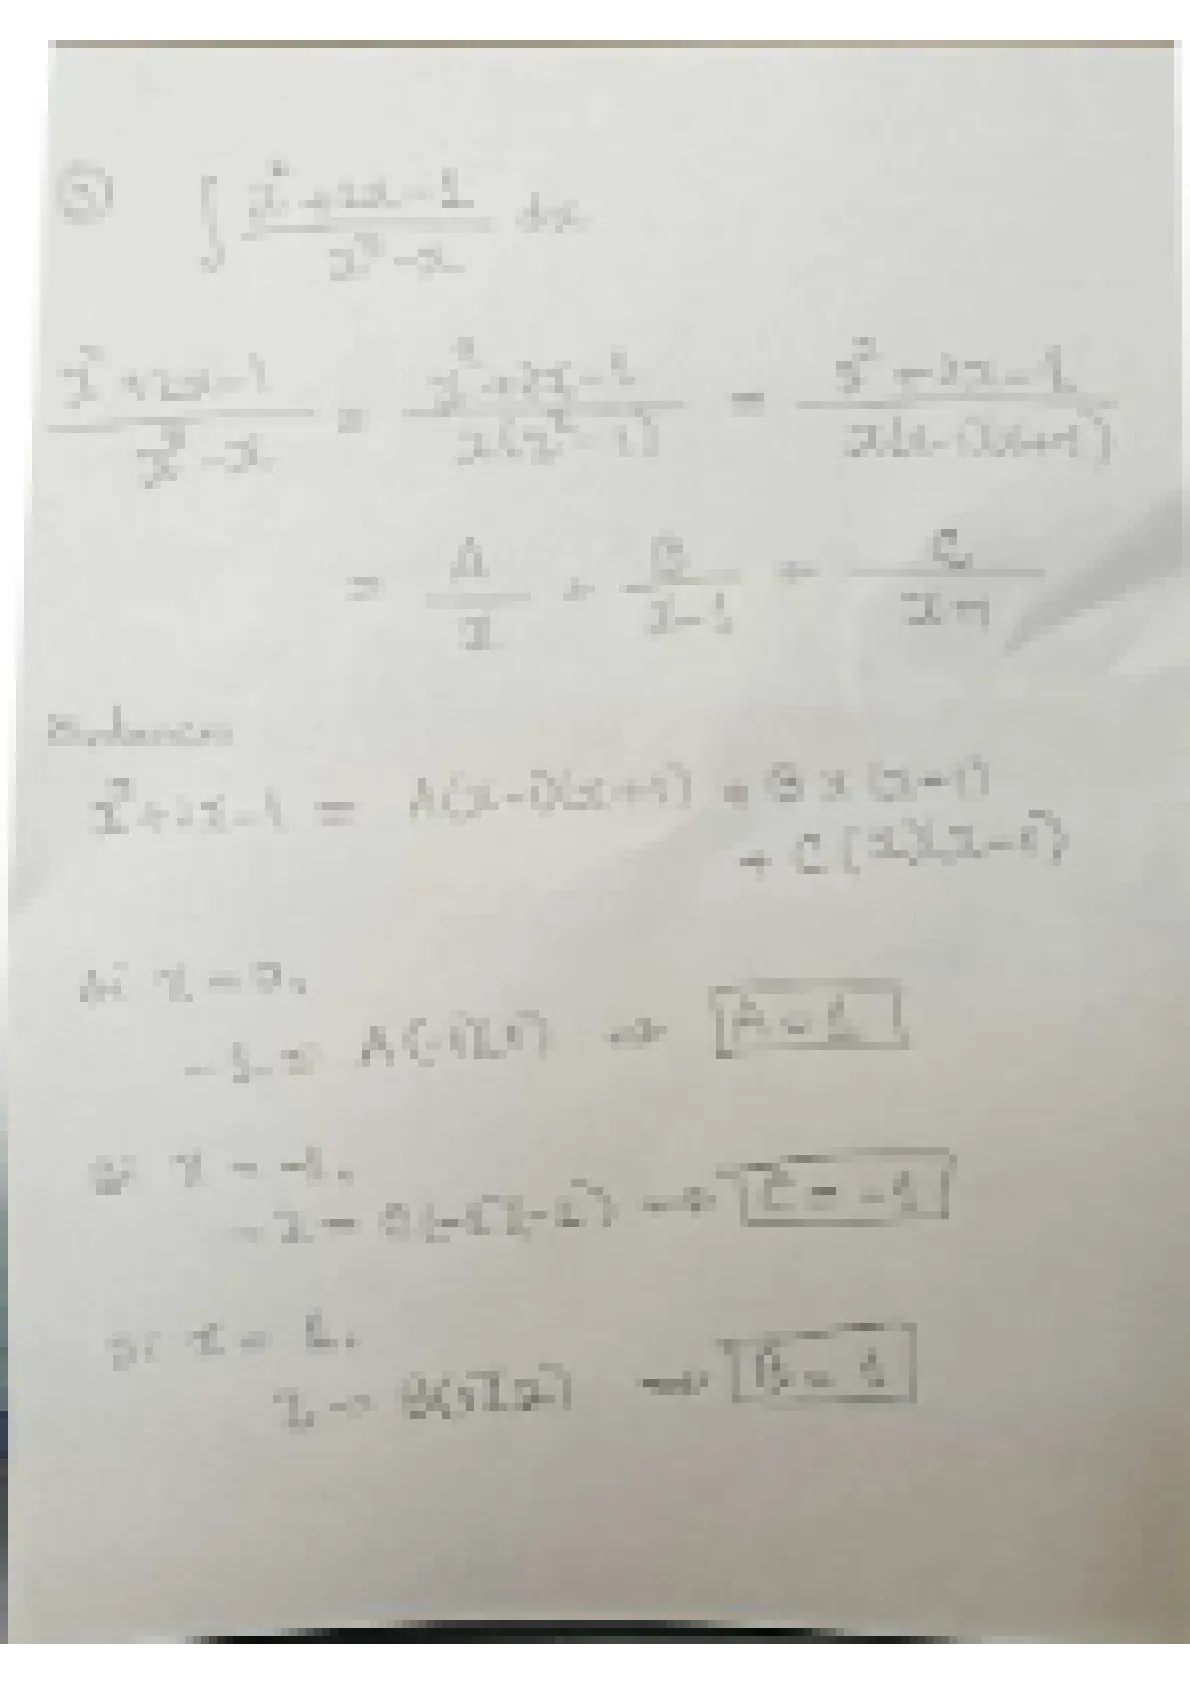 ∫ x²+2x-1 / x³-x dx
x²+2x-1 / x³-x = x²+2x-1 / x(x²-1) = x²+2x-1 / x(x-1)(x+1)
= A/x + B/x-1 + C/x+1
Entonces
x²+2x-1 = A(x-1)(x+1) + Bx(x+1)
+ C(x)(x-1)
si x=0,
-1 = A(-1)(1) → A=1
si x = -1,
-2 = (-1)(-2) → C = -1
si x = 1,
2 = B(1)(2) → B = 1